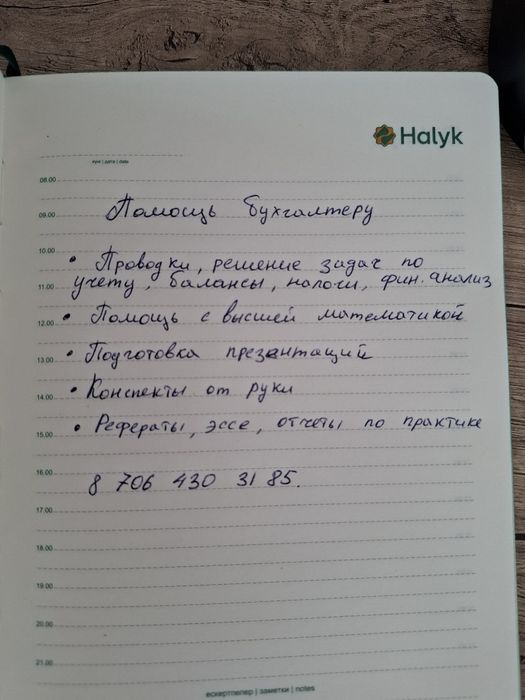 Halyk
күні | дата | date
08.00
09.00 Помощь бухгалтеру
10.00 • Проводки, решение задач по
11.00 учету, балансы, налоги, фин. анализ
12.00 • Помощь с высшей математикой
13.00 • Подготовка презентаций
14.00 • Конспекты от руки
15.00 • Рефераты, эссе, отчеты по практике
16.00
8 706 430 31 85.
17.00
18.00
19.00
20.00
21.00
ескертпелер | заметки | notes